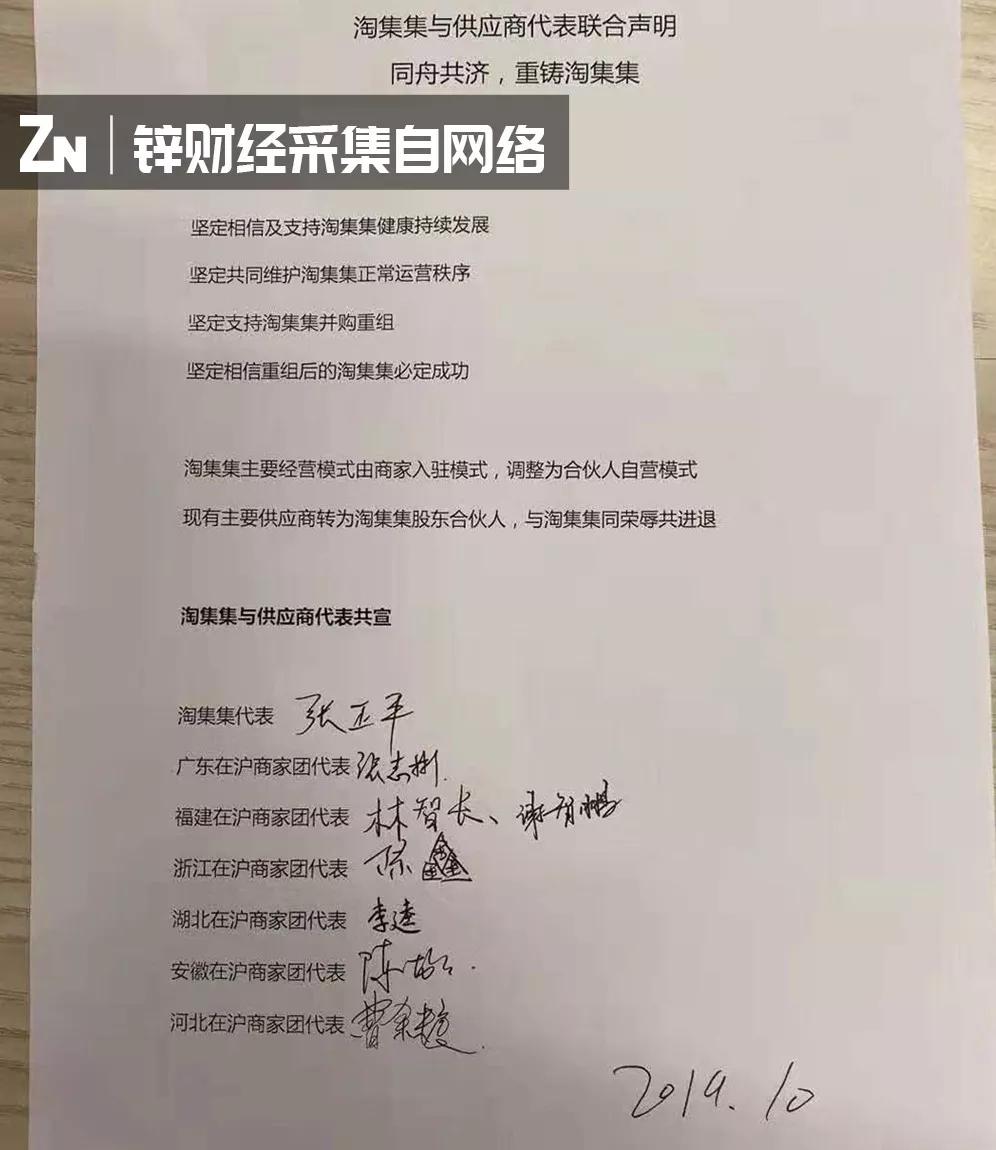 淘集集与供应商代表联合声明
同舟共济，重铸淘集集
ZN 锌财经采集自网络
坚定相信及支持淘集集健康持续发展
坚定共同维护淘集集正常运营秩序
坚定支持淘集集并购重组
坚定相信重组后的淘集集必定成功
淘集集主要经营模式由商家入驻模式，调整为合伙人自营模式
现有主要供应商转为淘集集股东合伙人，与淘集集同荣辱共进退
淘集集与供应商代表共宣
淘集集代表 张正平
广东在沪商家团代表 张志彬
福建在沪商家团代表 林智长、谢有鹏
浙江在沪商家团代表 陈鑫
湖北在沪商家团代表 李逵
安徽在沪商家团代表 陈
河北在沪商家团代表 曹
2019.10